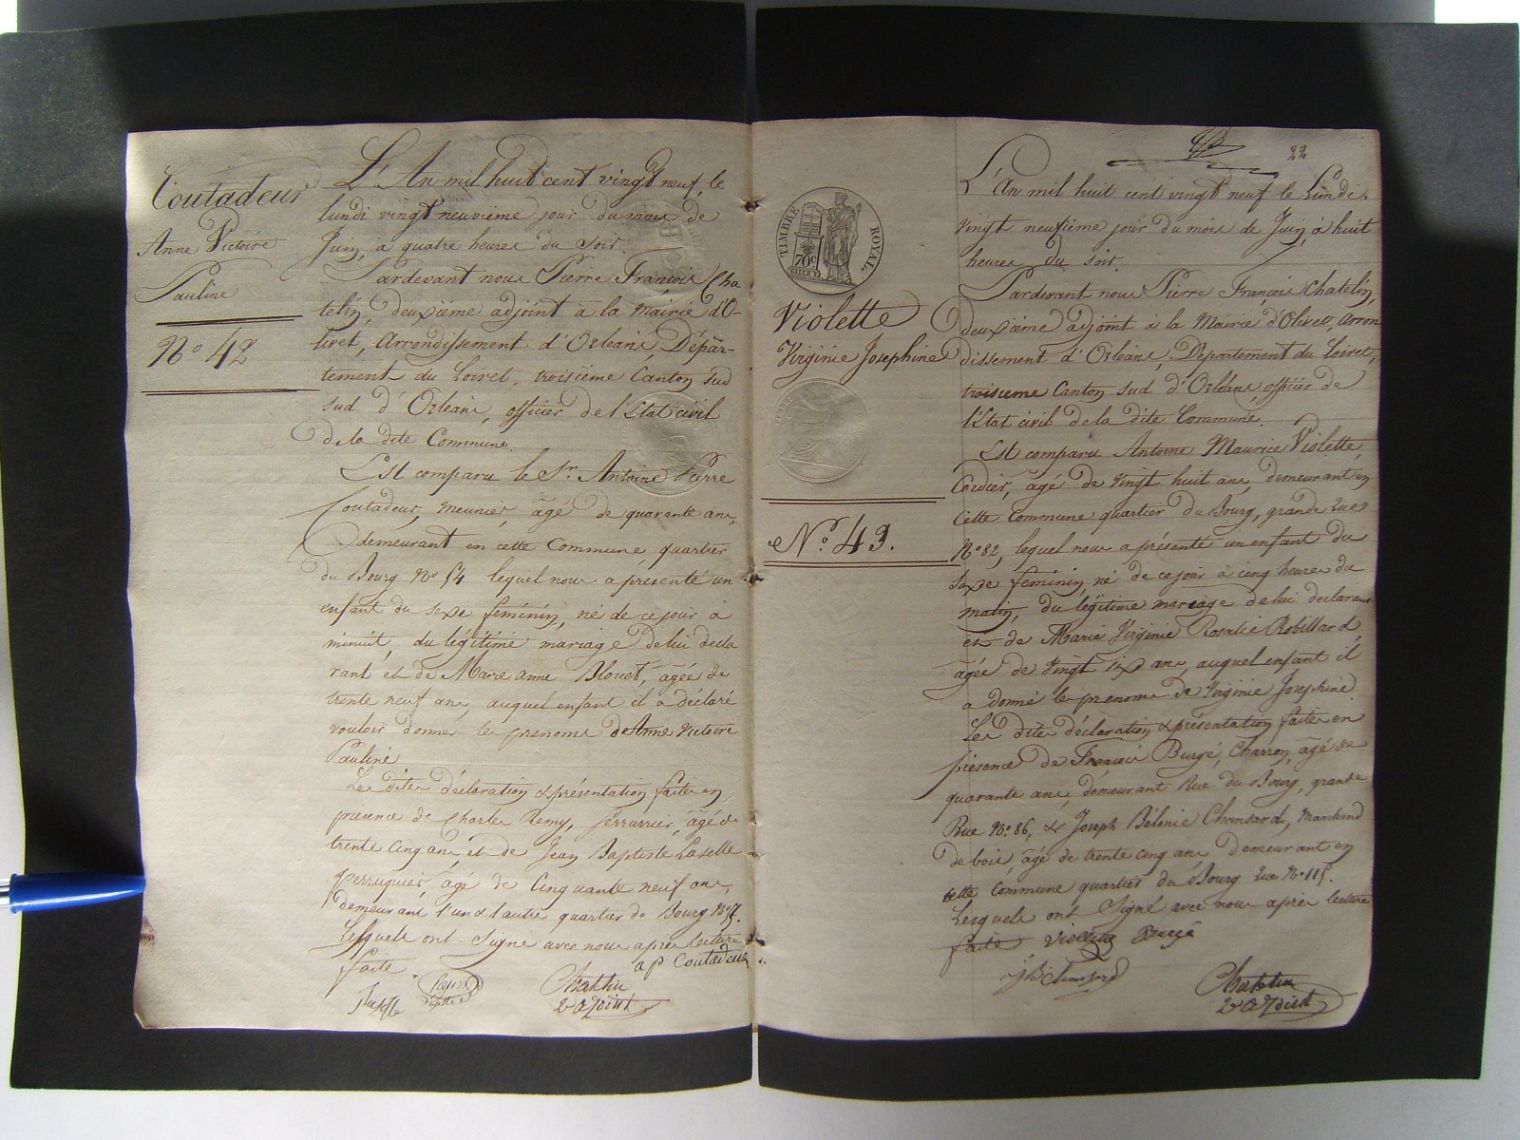 Coutadeur
Anne Victoire
Pauline
No 42
L'An mil huit cent vingt neuf, le
lundi vingt neuvième jour du mois de
Juin, à quatre heures du soir.
Pardevant nous Pierre François Cha
telin, deuxième adjoint à la Mairie d'O-
livet, Arrondissement d'Orléans, Dépar-
tement du Loiret, troisième Canton sud
sud d'Orléans, officier de l'Etat civil
de la dite Commune.
Est comparu le Sr. Antoine Pierre
Coutadeur, meunier, âgé de quarante ans,
demeurant en cette Commune, quartier
du Bourg No 54 lequel nous a présenté un
enfant du sexe féminin, né de ce jour à
minuit, du légitime mariage de lui décla
rant et de Marie anne Blouet, âgée de
trente neuf ans, auquel enfant il a déclaré
vouloir donner les prenoms de Anne Victoire
Pauline
Les dites déclaration & présentation faites en
présence de Charles Remy, serrurier, âgé de
trente cinq ans, et de Jean Baptiste Laselle
perruquier, âgé de Cinquante neuf ans,
demeurant l'un & l'autre quartier du Bourg
Lesquels ont signé avec nous après lecture
faite
a p Coutadeur
Chatelin
2e adjoint
TIMBRE ROYAL
70c
Violette
Virginie Josephine
No. 43.
22
L'An mil huit cent vingt neuf le Lundi
vingt neuvième jour du mois de Juin, à huit
heures du soir.
Pardevant nous Pierre François Chatelin,
deuxième adjoint à la Mairie d'Olivet, Arron
dissement d'Orléans, Département du Loiret,
troisieme Canton sud d'Orléans, officier de
l'Etat civil de la dite Commune.
Est comparu Antoine Maurice Violette,
Cordier, âgé de vingt huit ans, demeurant en
cette Commune quartier du Bourg, grande rue
No 82, lequel nous a présenté un enfant du
sexe féminin, né de ce jour à cinq heures du
matin, du légitime mariage de lui déclarant
et de Marie Virginie Rosalie Robillard,
âgée de vingt six ans, auquel enfant il
a donné les prenoms de Virginie Josephine
Les dites déclaration & présentation faites en
présence de François Burgé, Charron, âgé de
quarante ans, demeurant Rue du Bourg, grande
Rue No. 86, & Joseph Chomsard, Marchand
de bois, âgé de trente cinq ans demeurant en
cette Commune quartier du Bourg rue No 115.
Lesquels ont signé avec nous après lecture
faite Violette Burgé
Chatelin
2e adjoint